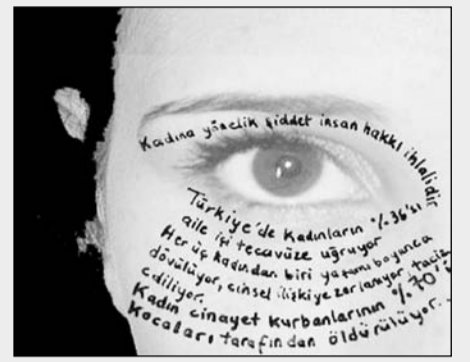 Kadına yönelik şiddet insan hakkı ihlalidir
Türkiye'de kadınların %36'sı
aile içi tecavüze uğruyor
Her üç kadından biri yaşamı boyunca
dövülüyor, cinsel ilişkiye zorlanıyor, taciz
ediliyor.
Kadın cinayet kurbanlarının %70'i
kocaları tarafından öldürülüyor..